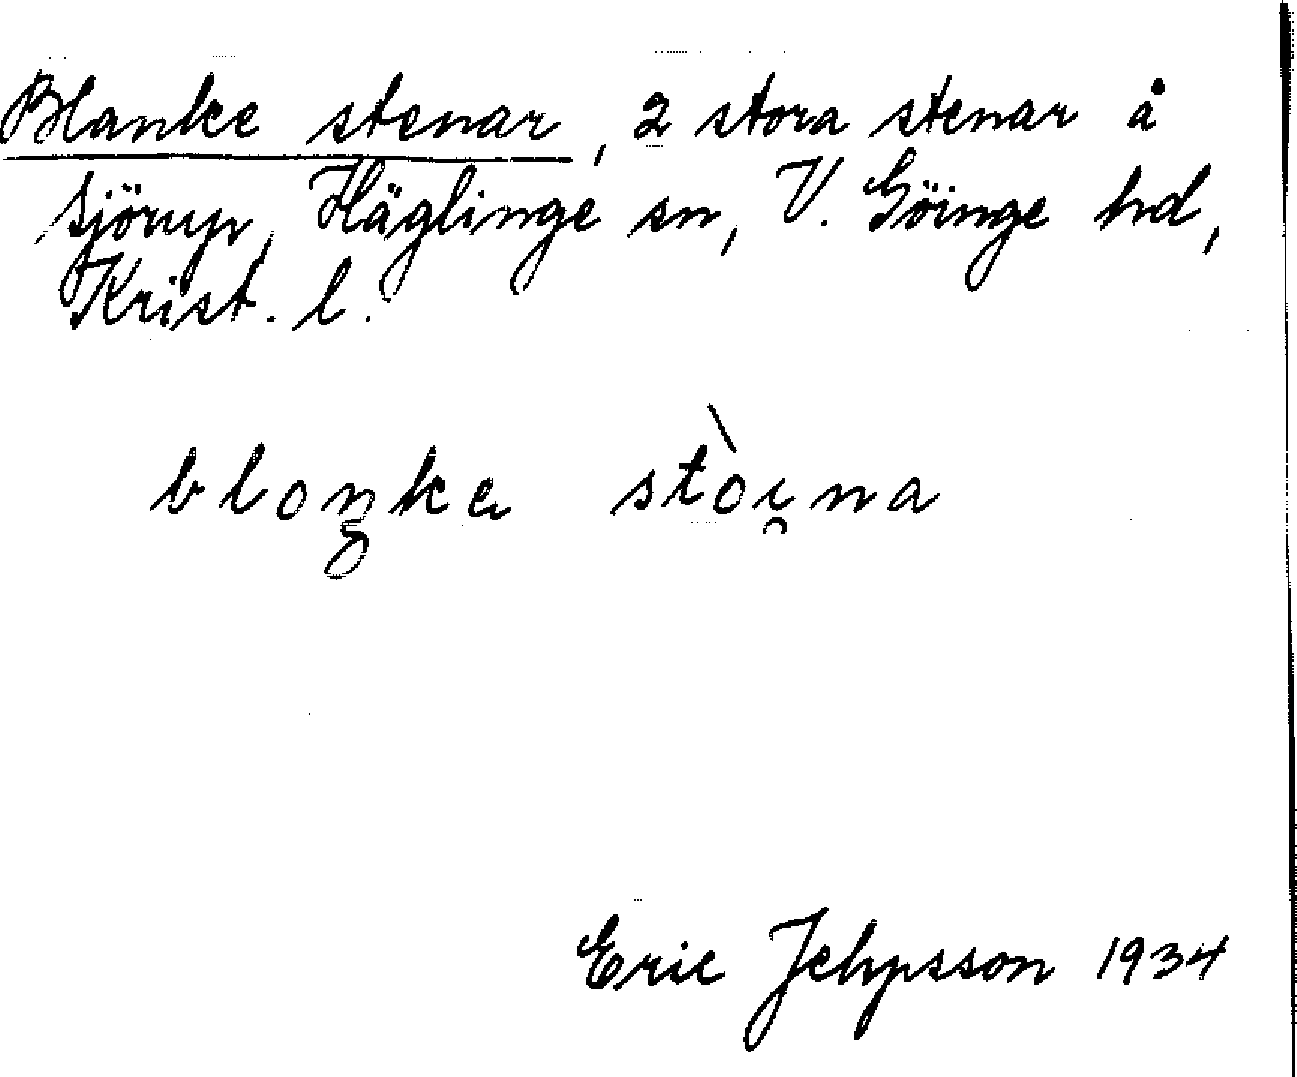 Blanke stenar, 2 stora stenar å
Sjörup, Häglinge sn, V. Göinge hd,
Krist. l.
sto̖i̯na
Eric Jehpsson 1934